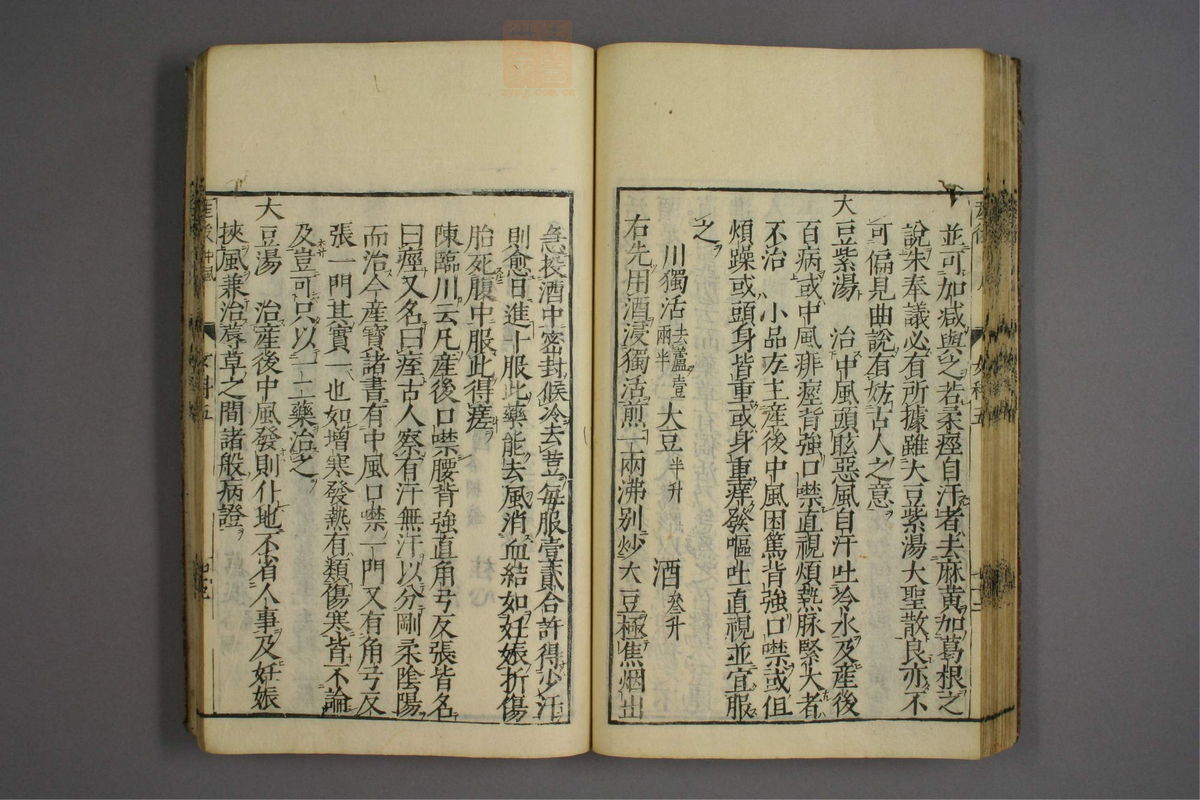 並可加減與之若柔痓自汗者去麻黃加葛根之
說朱奉議必有所據雖大豆紫湯大聖散良亦不
可偏見曲說有妨古人之意
大豆紫湯 治中風頭眩惡風自汗吐冷水及產後
百病或中風痱痙背強口噤直視煩熱脉緊大者
不治 小品方主產後中風困篤背強口噤或但
煩躁或頭身皆重或身重痒發嘔吐直視並宜服
之
川獨活去蘆壹兩半 大豆半升 酒叄升
右先用酒浸獨活煎一兩沸别炒大豆極焦烟出
急投酒中密封候冷去荳每服壹貳合許得少汗
則愈日進十服此藥能去風消血結如妊娠折傷
胎死腹中服此得瘥
陳臨川云凡產後口噤腰背強直角弓反張皆名
曰痙又名曰痓古人察有汗無汗以分剛柔陰陽
而治今產寶諸書有中風口噤一門又有角弓反
張一門其實一也如增寒發熱有類傷寒皆不論
及豈可只以一二藥治之
大豆湯 治產後中風發則仆地不省人事及妊娠
挾風兼治蓐草之間諸般病證